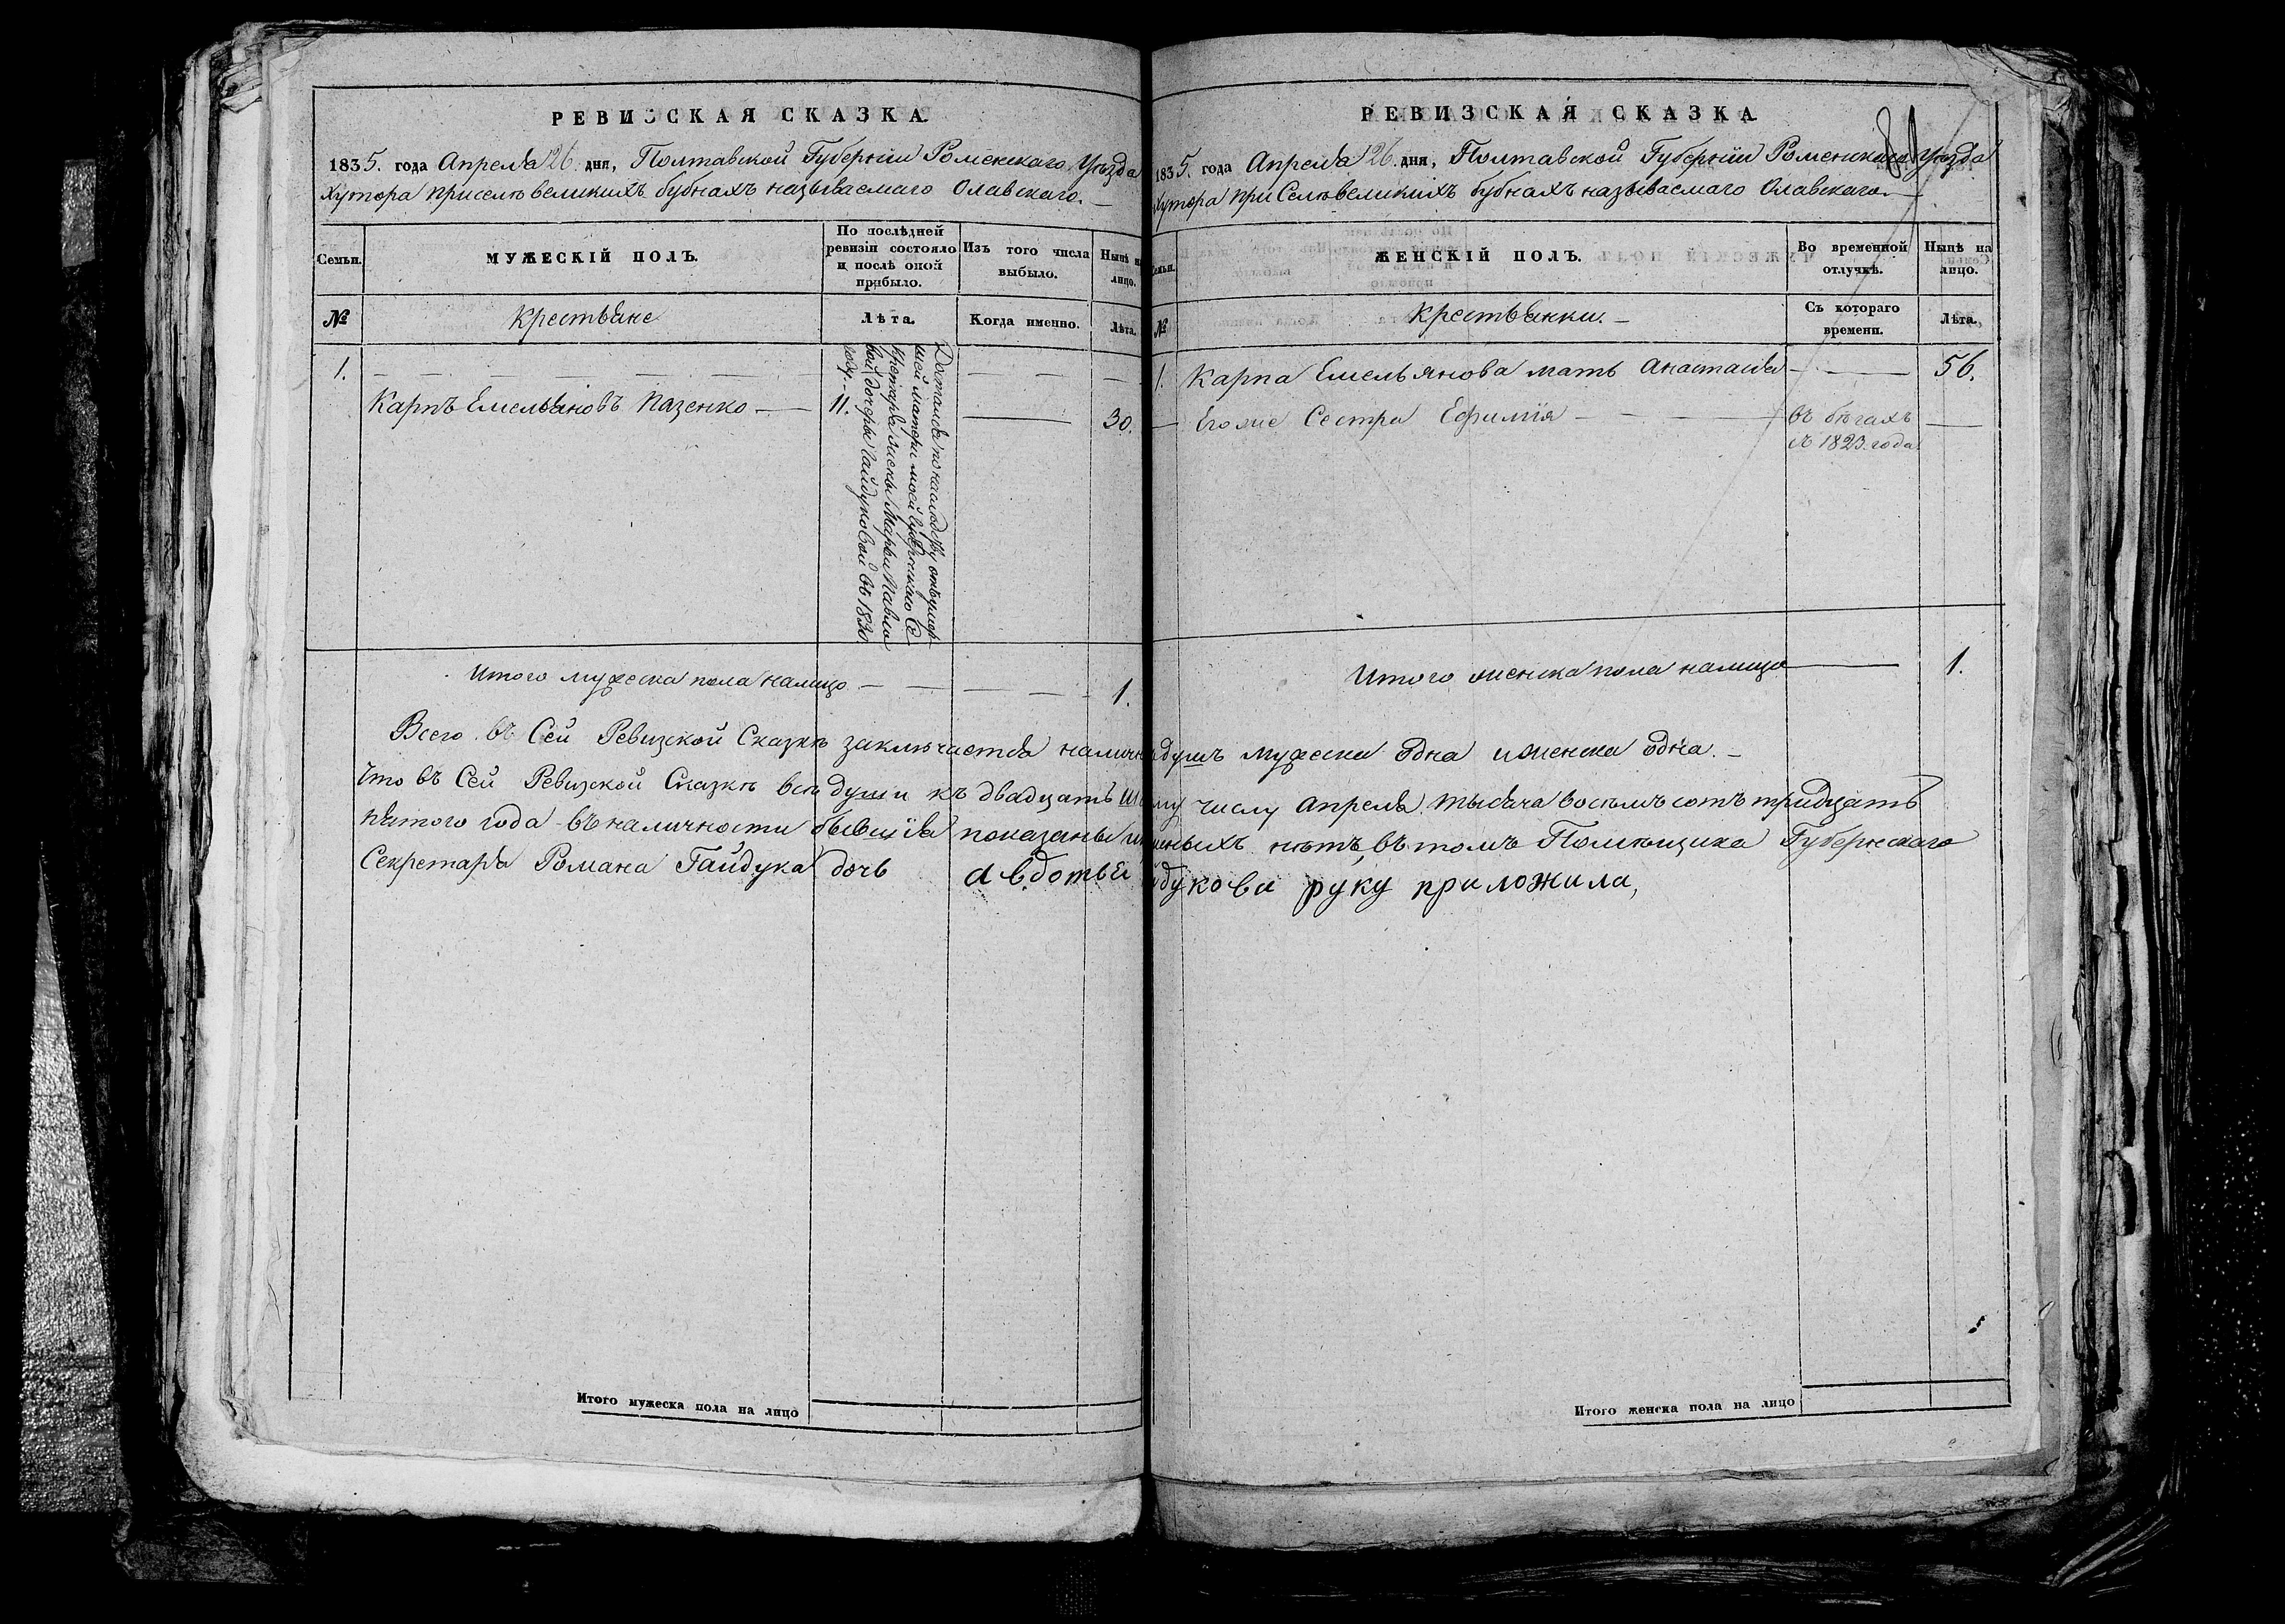 РЕВИЗСКАЯ СКАЗКА.
1835. года Апреля 26 дня, Полтавской Губернiи Роменскаго Уѣзда
Хутора при селѣ великихъ бубнахъ называемаго Олавскаго. —
Семьи.
МУЖЕСКIЙ ПОЛЪ.
По послѣдней
ревизiи состояло
и послѣ оной
прибыло.
Изъ того числа
выбыло.
Нынѣ на
лицо.
№
Крестьяне
Лѣта.
Когда именно.
Лѣта.
1.
Карпъ Емельяновъ Пазенко — 11. 30.
Досталса по наследству отъ умер
шей матери моей Губернскаго Се
кретаря жены Марьи Павло
вой дочери Гайдуковой въ 1830
году. —
Итого мужеска пола налицо — — — — 1.
РЕВИЗСКАЯ СКАЗКА
1835. года Апреля 26. дня, Полтавской Губернiи Роменскаго Уѣзда
Хутора при Селѣ великихъ бубнахъ называемаго Олавскаго. —
Семьи.
ЖЕНСКIЙ ПОЛЪ.
Во временной
отлучкѣ.
Нынѣ на
лицо.
№
Крестьянки. —
Съ котораго
времени.
Лѣта.
1. Карпа Емельянова мать Анастасiя — — 56.
— Егоже Сестра Ефимiя — — — въ бѣгахъ —
съ 1823. года
Итого женска пола налицо — 1.
Всего въ Сей Ревизской Сказкѣ заключается налич душъ мужеска одна и женска одна. —
Что въ Сей Ревизской Сказкѣ всѣ души къ двадцать ше му числу Апреля тысяча восемь сотъ тридцать
пятого года въ наличности бывшiя показаны и ных нѣтъ, въ томъ Помѣщика Губернскаго
Секретаря Романа Гайдука дочь Авдотья дукова руку приложила,
Итого мужеска пола на лицо
Итого женска пола на лицо